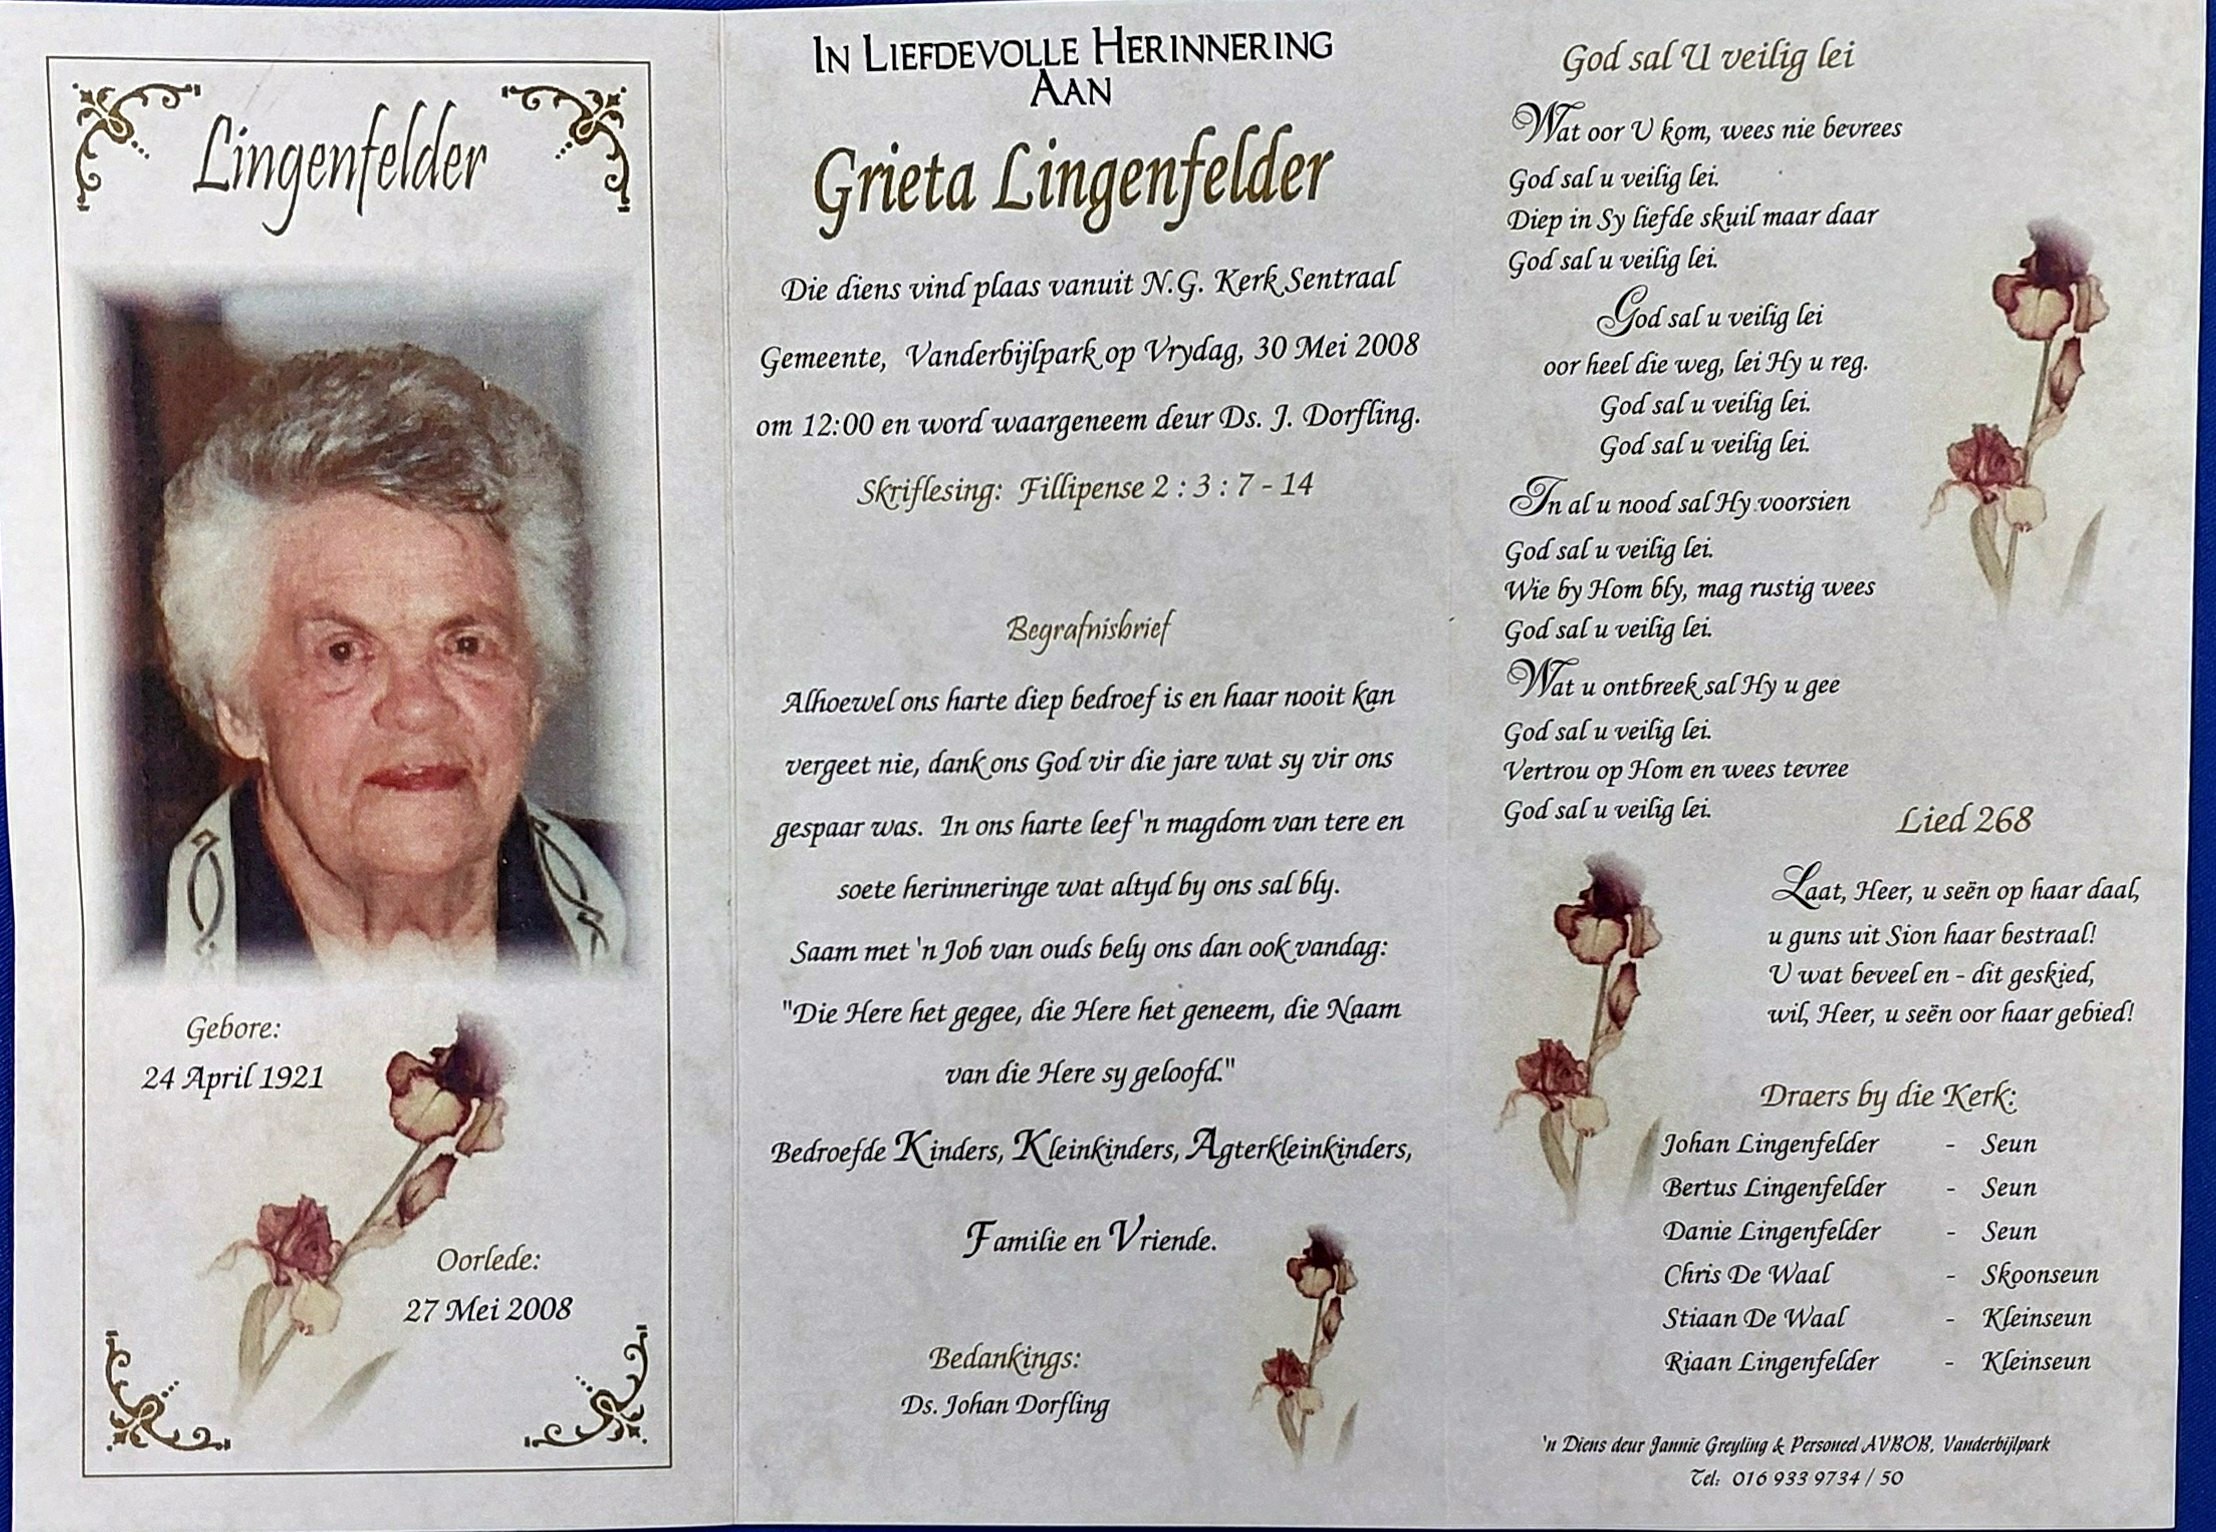 Lingenfelder
Gebore:
24 April 1921
Oorlede:
27 Mei 2008
In Liefdevolle Herinnering
Aan
Grieta Lingenfelder
Die diens vind plaas vanuit N.G. Kerk Sentraal
Gemeente, Vanderbijlpark op Vrydag, 30 Mei 2008
om 12:00 en word waargeneem deur Ds. J. Dorfling.
Skriflesing: Fillipense 2 : 3 : 7 - 14
Begrafnisbrief
Alhoewel ons harte diep bedroef is en haar nooit kan
vergeet nie, dank ons God vir die jare wat sy vir ons
gespaar was. In ons harte leef 'n magdom van tere en
soete herinneringe wat altyd by ons sal bly.
Saam met 'n Job van ouds bely ons dan ook vandag:
"Die Here het gegee, die Here het geneem, die Naam
van die Here sy geloofd."
Bedroefde Kinders, Kleinkinders, Agterkleinkinders,
Familie en Vriende.
Bedankings:
Ds. Johan Dorfling
God sal U veilig lei
Wat oor U kom, wees nie bevrees
God sal u veilig lei.
Diep in Sy liefde skuil maar daar
God sal u veilig lei.
God sal u veilig lei
oor heel die weg, lei Hy u reg.
God sal u veilig lei.
God sal u veilig lei.
In al u nood sal Hy voorsien
God sal u veilig lei.
Wie by Hom bly, mag rustig wees
God sal u veilig lei.
Wat u ontbreek sal Hy u gee
God sal u veilig lei.
Vertrou op Hom en wees tevree
God sal u veilig lei.
Lied 268
Laat, Heer, u seën op haar daal,
u guns uit Sion haar bestraal!
U wat beveel en - dit geskied,
wil, Heer, u seën oor haar gebied!
Draers by die Kerk:
Johan Lingenfelder - Seun
Bertus Lingenfelder - Seun
Danie Lingenfelder - Seun
Chris De Waal - Skoonseun
Stiaan De Waal - Kleinseun
Riaan Lingenfelder - Kleinseun
'n Diens deur Jannie Greyling & Personeel AVBOB, Vanderbijlpark
Tel: 016 933 9734 / 50